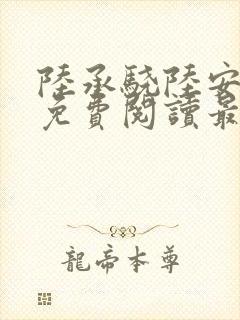 陸承驍陸安
免費閱讀最
龍帝本尊